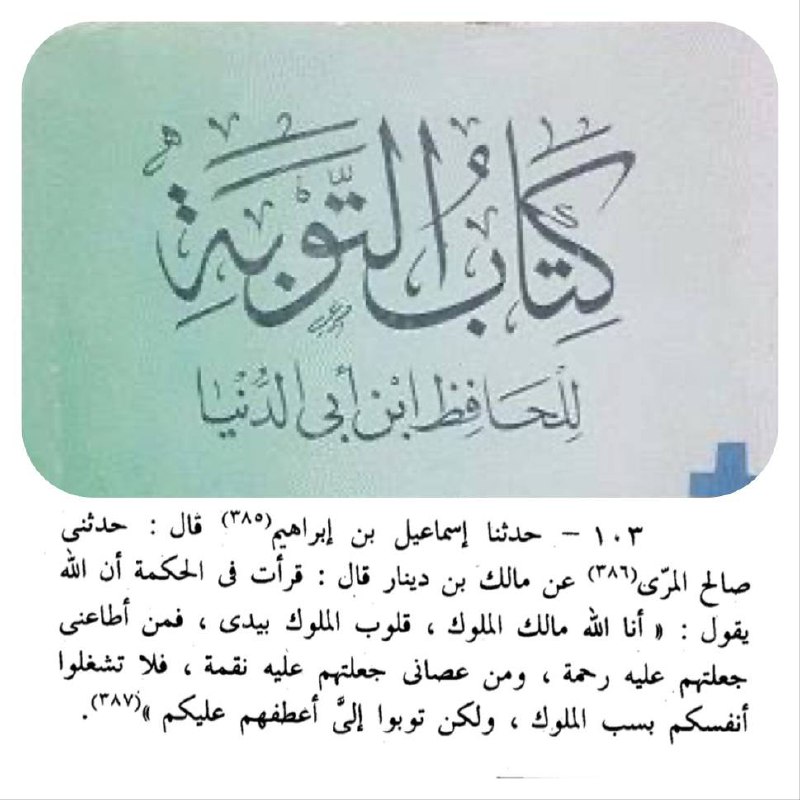 كِتَابُ التَّوْبَةِ
لِلحَافِظ ابْن أبى الدُّنْيَا
١٠٣ – حدثنا إسماعيل بن إبراهيم(٣٨٥) قال : حدثنى
صالح المرّى(٣٨٦) عن مالك بن دينار قال : قرأت فى الحكمة أن الله
يقول : « أنا الله مالك الملوك ، قلوب الملوك بيدى ، فمن أطاعنى
جعلتهم عليه رحمة ، ومن عصانى جعلتهم عليه نقمة ، فلا تشغلوا
أنفسكم بسب الملوك ، ولكن توبوا إلىَّ أعطفهم عليكم »(٣٨٧).